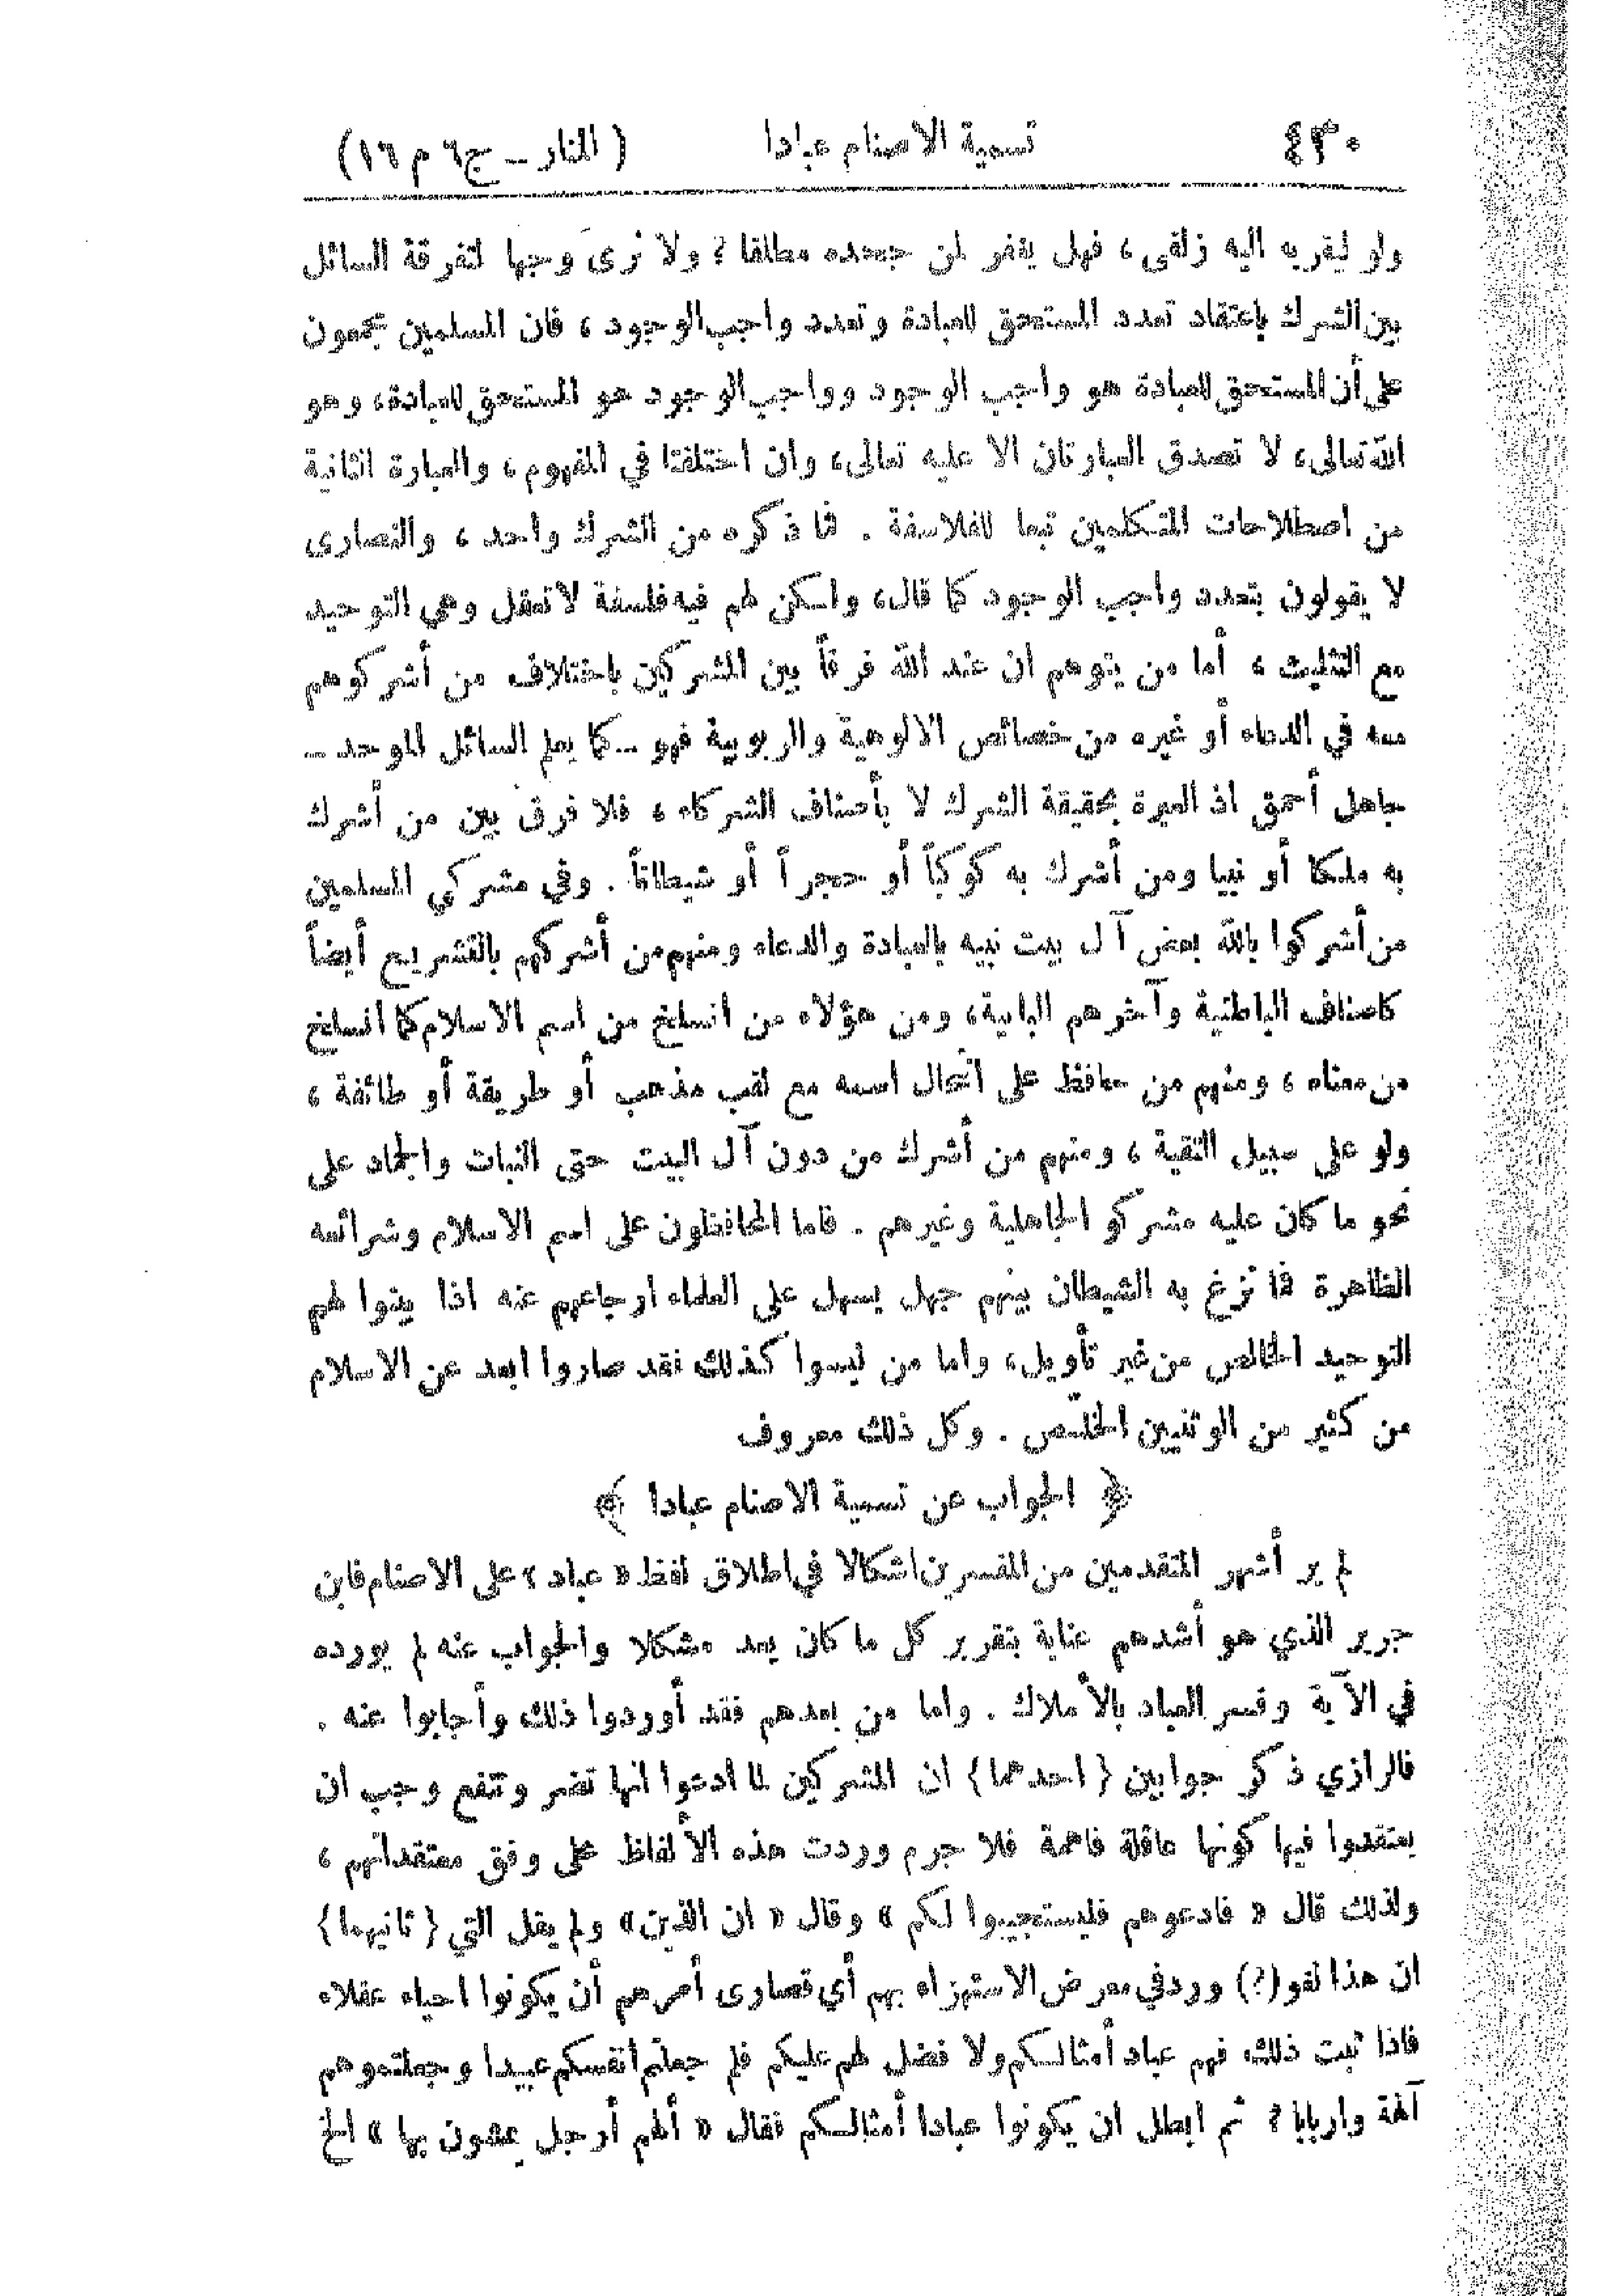 ٤٣٠ تسمية الاصنام عبادا ( المنار ــ ج٦ م ١٦)
ولو ليقربه اليه زلفى ، فهل يغفر لمن جحده مطلقا ؟ ولا نرى وجها لتفرقة السائل
بين الشرك باعتقاد تعدد المستحق للعبادة وتعدد واجب الوجود ، فان المسلمين مجمعون
على أن المستحق للعبادة هو واجب الوجود وواجب الوجود هو المستحق للعبادة، وهو
الله تعالى، لا تصدق العبارتان الا عليه تعالى، وان اختلفتا في المفهوم ، والعبارة الثانية
من اصطلاحات المتكلمين تبعا للفلاسفة . فما ذكره من الشرك واحد ، والنصارى
لا يقولون بتعدد واجب الوجود كما قال، ولكن لهم فيه فلسفة لا تعقل وهي التوحيد
مع التثليث ، أما من يتوهم ان عند الله فرقاً بين المشركين باختلاف من أشركوهم
معه في الدعاء أو غيره من خصائص الالوهية والربوبية فهو ــ كما يعلم السائل الموحد ــ
جاهل أحمق اذ العبرة بحقيقة الشرك لا بأصناف الشركاء ، فلا فرق بين من أشرك
به ملكا أو نبيا ومن أشرك به كوكباً أو حجراً أو شيطاناً . وفي مشركي المسلمين
من أشركوا بالله بعض آل بيت نبيه بالعبادة والدعاء ومنهم من أشركهم بالتشريع أيضاً
كاصناف الباطنية وآخرهم البابية، ومن هؤلاء من انسلخ من اسم الاسلام كما انسلخ
من معناه ، ومنهم من حافظ على انتحال اسمه مع لقب مذهب أو طريقة أو طائفة ،
ولو على سبيل التقية ، ومنهم من أشرك من دون آل البيت حتى النبات والجماد على
نحو ما كان عليه مشركو الجاهلية وغيرهم . فاما المحافظون على اسم الاسلام وشرائعه
الظاهرة فما نزغ به الشيطان بينهم جهل يسهل على العلماء ارجاعهم عنه اذا بينوا لهم
التوحيد الخالص من غير تأويل، واما من ليسوا كذلك فقد صاروا ابعد عن الاسلام
من كثير من الوثنيين الخلّص . وكل ذلك معروف
﴿ الجواب عن تسمية الاصنام عبادا ﴾
لم ير أشهر المتقدمين من المفسرين اشكالا في اطلاق لفظ « عباد » على الاصنام فابن
جرير الذي هو أشدهم عناية بتقرير كل ما كان يعد مشكلا والجواب عنه لم يورده
في الآية وفسر العباد بالأملاك . واما من بعدهم فقد أوردوا ذلك وأجابوا عنه .
فالرازي ذكر جوابين {احدهما} ان المشركين لما ادعوا انها تضر وتنفع وجب ان
يعتقدوا فيها كونها عاقلة فاهمة فلا جرم وردت هذه الألفاظ على وفق معتقداتهم ،
ولذلك قال « فادعوهم فليستجيبوا لكم » وقال « ان الذين » ولم يقل التي {ثانيهما}
ان هذا لغو (؟) ورد في معرض الاستهزاء بهم أي قصارى أمرهم أن يكونوا احياء عقلاء
فاذا ثبت ذلك فهم عباد أمثالكم ولا فضل لهم عليكم فلم جعلتم انفسكم عبيدا وجعلتموهم
آلهة واربابا ؟ ثم ابطل ان يكونوا عبادا أمثالكم فقال « ألهم أرجل يمشون بها » الخ